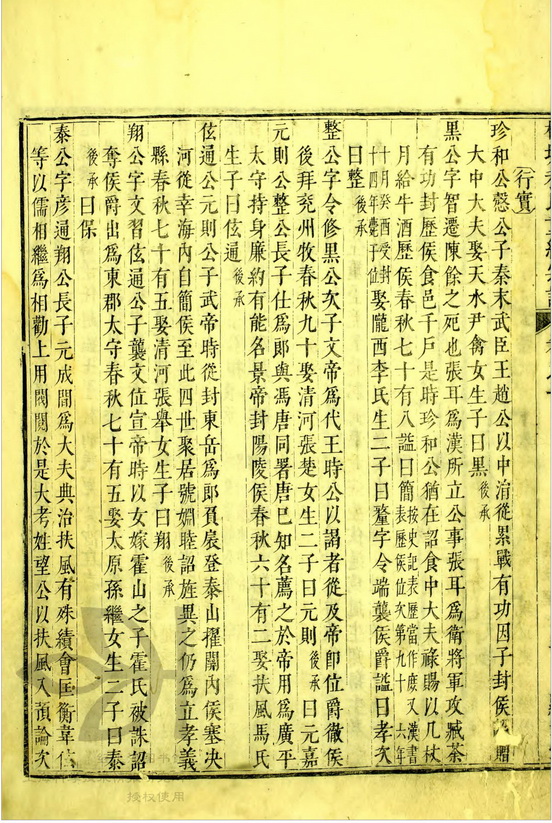 行實
珍和公愨公子秦末武臣王趙公以中涓從累戰有功因子封侯贈
大中大夫娶天水尹禽女生子曰黑後承
黑公字智遷陳餘之死也張耳爲漢所立公事張耳爲衛將軍攻臧荼
有功封歷侯食邑千戶是時珍和公猶在詔食中大夫祿賜以几杖
月給牛酒歷侯春秋七十有八諡曰簡按史記表歷當作磨又漢書表歷侯位次第九十六年
十月癸酉受封十四年薨于位娶隴西李氏生二子曰釐字令端襲侯爵諡曰孝次
曰整後承
整公字令修黑公次子文帝爲代王時公以謁者從及帝卽位爵徹侯
後拜兗州牧春秋九十娶清河張楚女生二子曰元則後承曰元嘉
元則公整公長子仕爲郞與馮唐同署唐已知名薦之於帝用爲廣平
太守持身廉約有能名景帝封陽陵侯春秋六十有二娶扶風馬氏
生子曰伭通後承
伭通公元則公子武帝時從封東岳爲郞負扆登泰山擢關內侯塞决
河從幸海內自簡侯至此四世聚居號婣睦詔旌異之仍爲立孝義
縣春秋七十有五娶清河張舉女生子曰翔後承
翔公字文習伭通公子襲文位宣帝時以女嫁霍山之子霍氏被誅詔
奪侯爵出爲東郡太守春秋七十有五娶太原孫繼女生二子曰泰
後承曰保
泰公字彥通翔公長子元成間爲大夫典治扶風有殊績會匡衡韋信
等以儒相繼爲相勸上用閥閱於是大考姓望公以扶風入預論次
授权使用